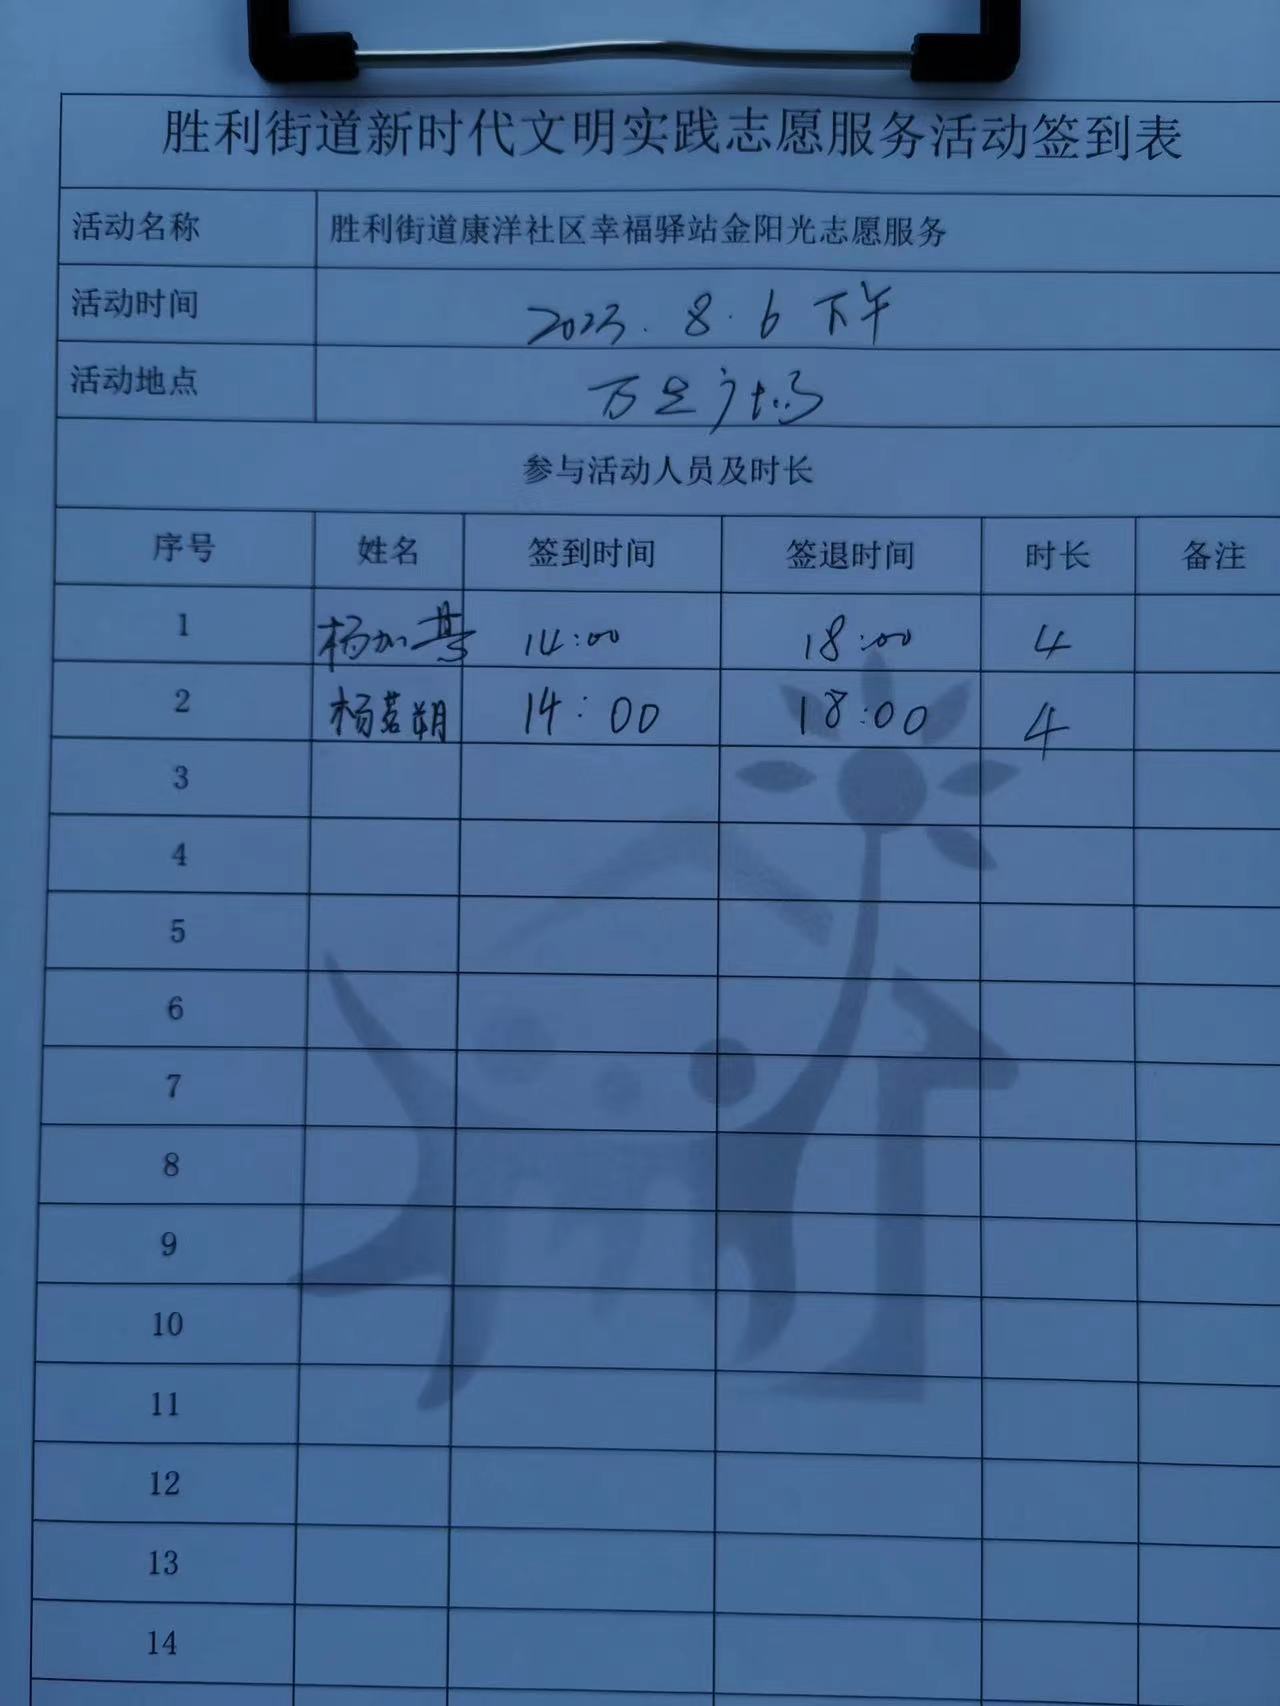 胜利街道新时代文明实践志愿服务活动签到表
活动名称 胜利街道康洋社区幸福驿站金阳光志愿服务
活动时间 2023.8.6 下午
活动地点 万达广场
参与活动人员及时长
序号 姓名 签到时间 签退时间 时长 备注
1 杨加 14:00 18:00 4
2 杨茗朔 14:00 18:00 4
3
4
5
6
7
8
9
10
11
12
13
14